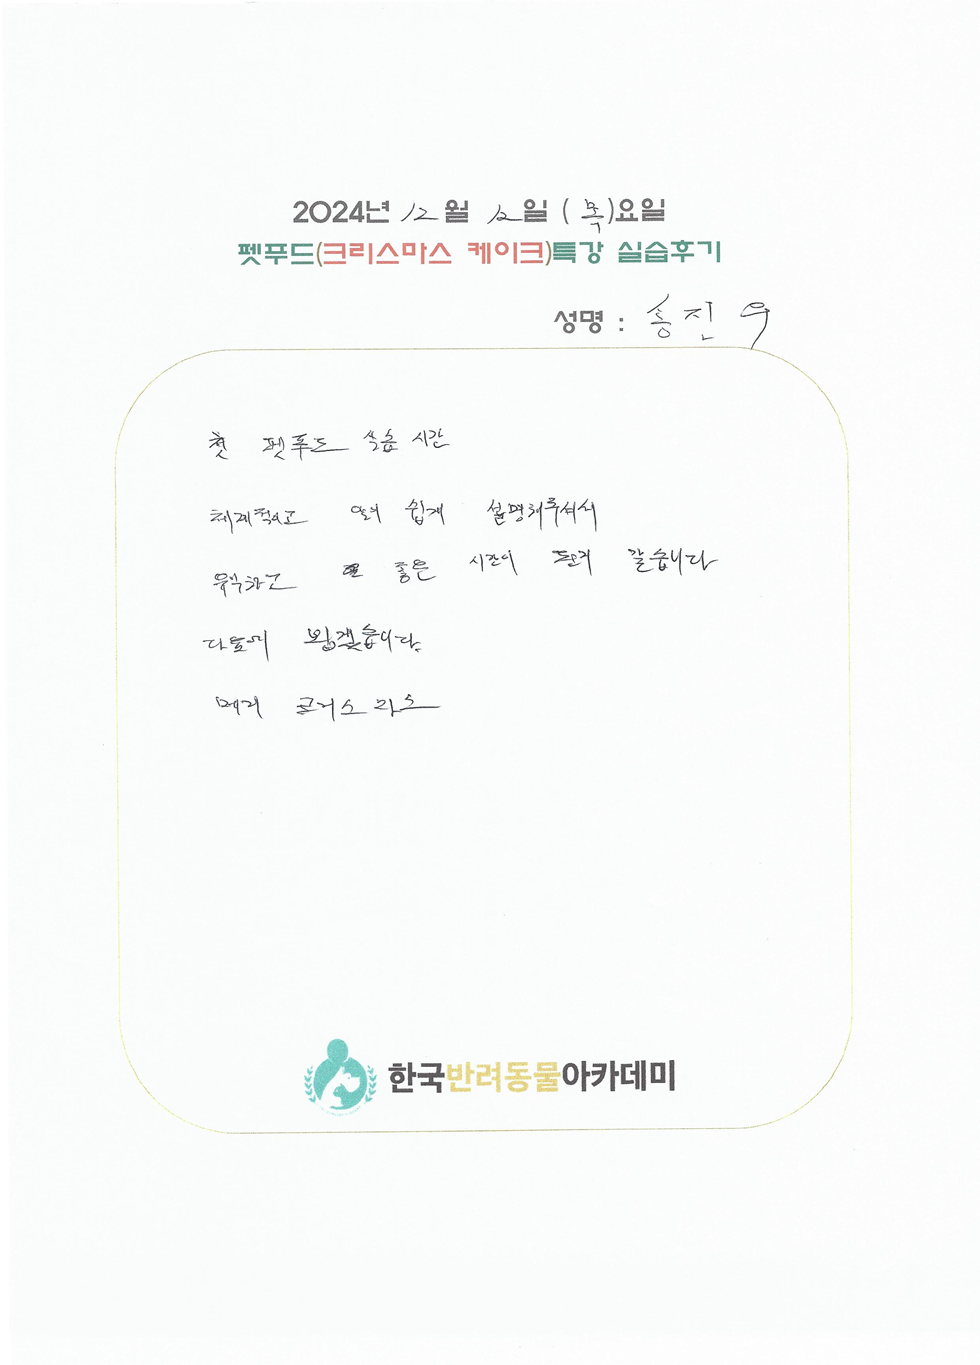 2024년 12월 12일 (목)요일
펫푸드(크리스마스 케이크)특강 실습후기
성명 : 송진우
첫 펫푸드 실습 시간
체계적이고 알기 쉽게 설명해주셔서
유익하고 좋은 시간이 된거 같습니다
다음에 뵙겠습니다.
메리 크리스마스
한국반려동물아카데미